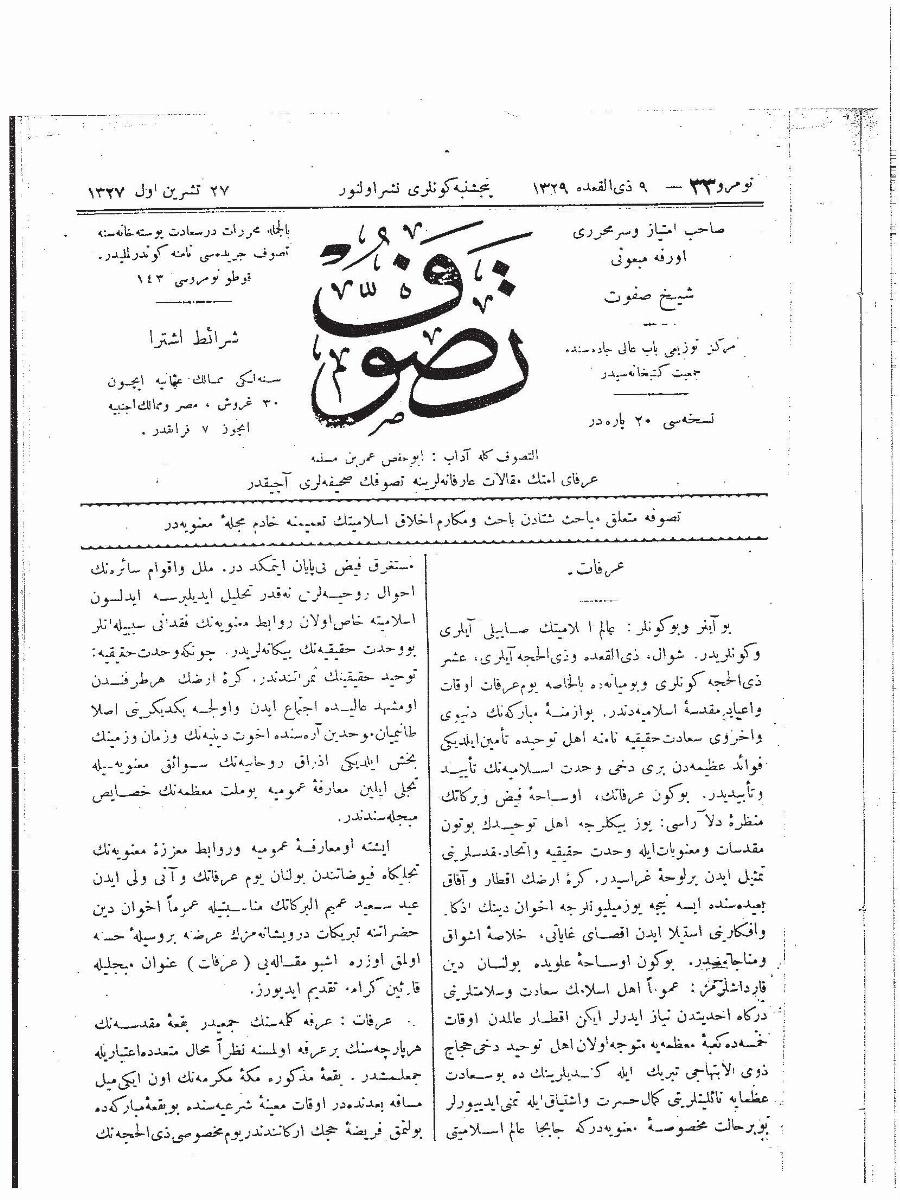 نومرو ٣٣ — ٩ ذی القعده ١٣٢٩
پنجشنبه کونلری نشر اولنور
٢٧ تشرین اول ١٣٢٧
صاحب امتیاز و سرمحرری
اورفه مبعوثی
شیخ صفوت
مرکز توزیعی باب عالی جاده سنده
جمعیت کتبخانه سیدر
نسخه سی ٢٠ پاره در
تصوف
بالجمله محررات درسعادت پوسته خانه سنه
تصوف جریده سی نامنه کوندرلملیدر.
قوطو نومروسی ١٤٣
شرائط اشترا
سنه لکی ممالك عثمانیه ایچون
٣٠ غروش ، مصر وممالك اجنبیه
ایچون ٧ فرانقدر .
التصوف کله آداب : ابوحفص عمر بن مسلمه
عرفای امتك مقالات عارفانه لرینه تصوفك صحیفه لری آچیقدر
تصوفه متعلق مباحث شتادن باحث و مکارم اخلاق اسلامیتك تعمیمنه خادم مجلهٔ معنویه در
عرفات .
بو آیلر و بوکونلر : عالم اسلامیتك صاییلی آیلری
وکونلریدر. شوال، ذی القعده وذی الحجه آیلری، عشر
ذی الحجه کونلری وبومیانه ده بالخاصه یوم عرفات اوقات
واعیاد مقدسهٔ اسلامیه دندر. بوازمنهٔ مبارکه نك دنیوی
واخروی سعادت حقیقیه نامنه اهل توحیده تأمین ایلدیکی
فوائد عظیمه دن بری دخی وحدت اسلامیه نك تأیید
وتأبیدیدر. بوکون عرفاتك، اوساحهٔ فیض وبرکاتك
منظرهٔ دلآراسی: یوز بیکلرجه اهل توحیدك بوتون
مقدسات ومعنویات ایله وحدت حقیقیه واتحاد مقدسلرینی
تمثیل ایدن برلوحهٔ غراسیدر. کرهٔ ارضك اقطار وآفاق
بعیده سنده ایسه نیجه یوز میلیونلرجه اخوان دینك اذکار
وافکارینی استیلا ایدن اقصای غایاتی، خلاصهٔ اشواق
ومناجاتیدر. بوکون اوساحهٔ علویده بولنان دین
قارداشلرمز: عموماً اهل اسلامك سعادت وسلامتلرینی
درکاه احدیتدن نیاز ایدرلر ایکن اقطار عالمدن اوقات
خمسه ده کعبهٔ معظمه یه متوجه اولان اهل توحید دخی حجاج
ذوی الابتهاجی تبریك ایله کندیلرینك ده بوسعادت
عظمایه نائلیتلرینی کمال حسرت واشتیاق ایله تمنی ایدییورلر
بو برحالت مخصوصهٔ معنویه درکه جابجا عالم اسلامیتی
مستغرق فیض بی پایان ایتمکده در. ملل واقوام سائره نك
احوال روحیه لری نه قدر تحلیل ایدیلیرسه ایدلسون
اسلامیته خاص اولان روابط معنویه نك فقدانی سببیله آنلر
بووحدت حقیقیه نك بیکانه لریدر. چونکه وحدت حقیقیه:
توحید حقیقینك ثمراتندندر. کرهٔ ارضك هر طرفندن
اومشهد عالیده اجتماع ایدن واولجه یکدیکرینی اصلا
طانیمیان موحدین آره سنده اخوت دینیه نك وزمان وزمینك
بخش ایلدیکی اذواق روحانیه نك سوائق معنویه سیله
تجلی ایلین معارفهٔ عمومیه بوملت معظمه نك خصایص
مبجله سندندر.
ایشته اومعارفهٔ عمومیه وروابط معززهٔ معنویه نك
تجلیکاه فیوضاتندن بولنان یوم عرفاتك وآنی ولی ایدن
عید سعید عمیم البرکاتك مناسبتیله عموماً اخوان دین
حضراتنه تبریکات درویشانه مزك عرضنه بروسیلهٔ حسنه
اولمق اوزره اشبو مقاله یی ( عرفات ) عنوان مبجلیله
قارئین کرامه تقدیم ایدیورز.
عرفات : عرفه کلمه سنك جمعیدر بقعهٔ مقدسه نك
هرپارچه سنك بر عرفه اولمسنه نظراً محال متعدده اعتباریله
جمعلمشدر . بقعهٔ مذکوره مکهٔ مکرمه نك اون ایکی میل
مسافه بعدنده در اوقات معینهٔ شرعیه سنده بوبقعهٔ مبارکه ده
بولنمق فریضهٔ حجك ارکانندندر یوم مخصوصی ذی الحجه نك